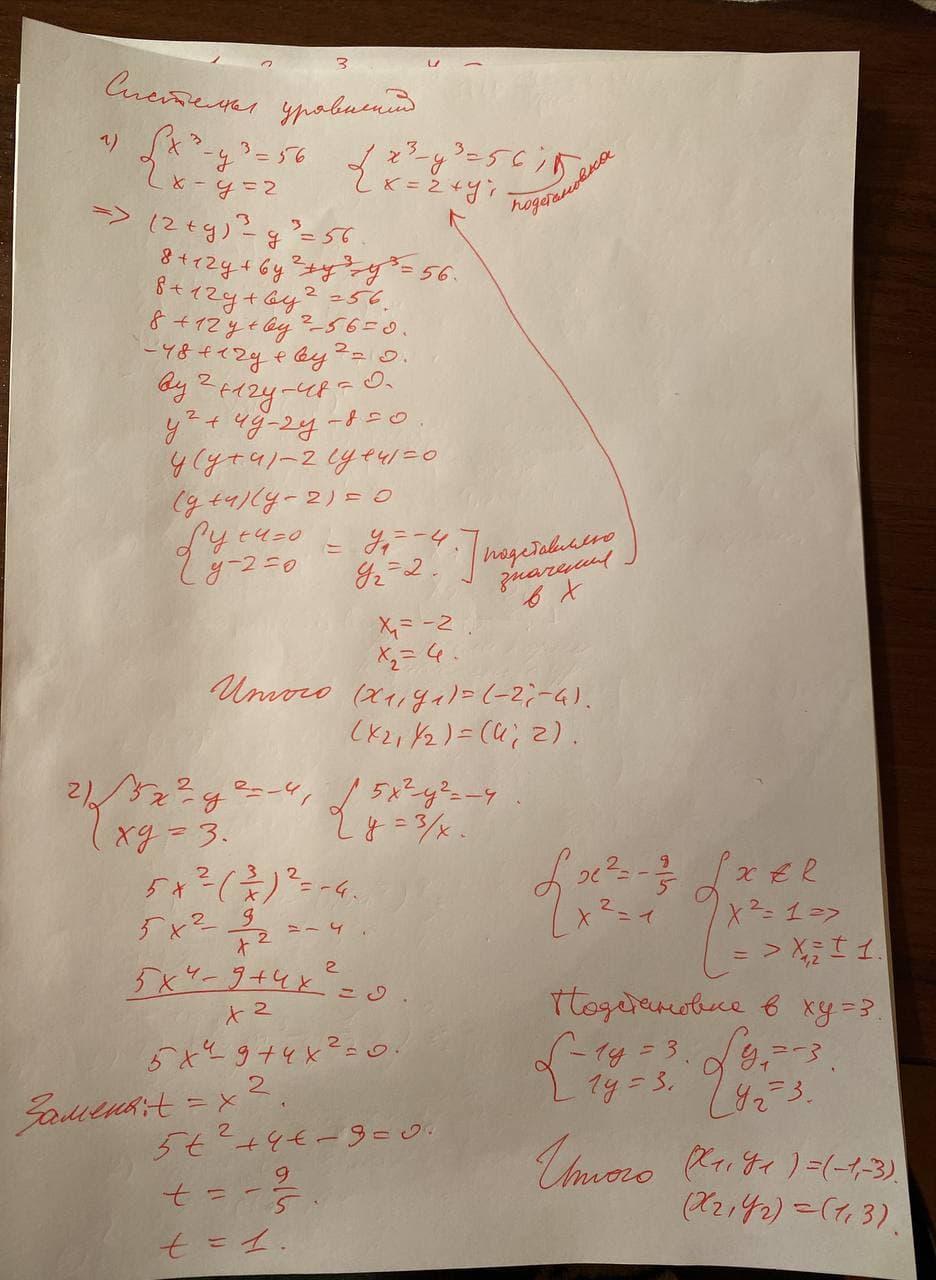 Системы уравнений
1) { x³ - y³ = 56 { x³ - y³ = 56;
x - y = 2 x = 2 + y; подстановка
=> (2 + y)³ - y³ = 56.
8 + 12y + 6y² + y³ - y³ = 56.
8 + 12y + 6y² = 56.
8 + 12y + 6y² - 56 = 0.
-48 + 12y + 6y² = 0.
6y² + 12y - 48 = 0.
y² + 4y - 2y - 8 = 0
y(y + 4) - 2(y + 4) = 0
(y + 4)(y - 2) = 0
{ y + 4 = 0 = y₁ = -4. ] подставляю
y - 2 = 0 y₂ = 2. значения
в X
x₁ = -2.
x₂ = 4.
Итого (x₁, y₁) = (-2; -4).
(x₂, y₂) = (4; 2).
2) { 5x² - y² = -4, { 5x² - y² = -4.
xy = 3. y = 3/x.
5x² - (3/x)² = -4.
5x² - 9/x² = -4
5x⁴ - 9 + 4x² / x² = 0.
5x⁴ - 9 + 4x² = 0.
Замена: t = x².
5t² + 4t - 9 = 0.
t = -9/5.
t = 1.
{ x² = -9/5 { x ∉ R
x² = 1 x² = 1 =>
=> x₁,₂ = ± 1.
Подстановка в xy = 3.
{ -1y = 3. { y₁ = -3.
1y = 3. y₂ = 3.
Итого (x₁, y₁) = (-1, -3).
(x₂, y₂) = (1, 3).